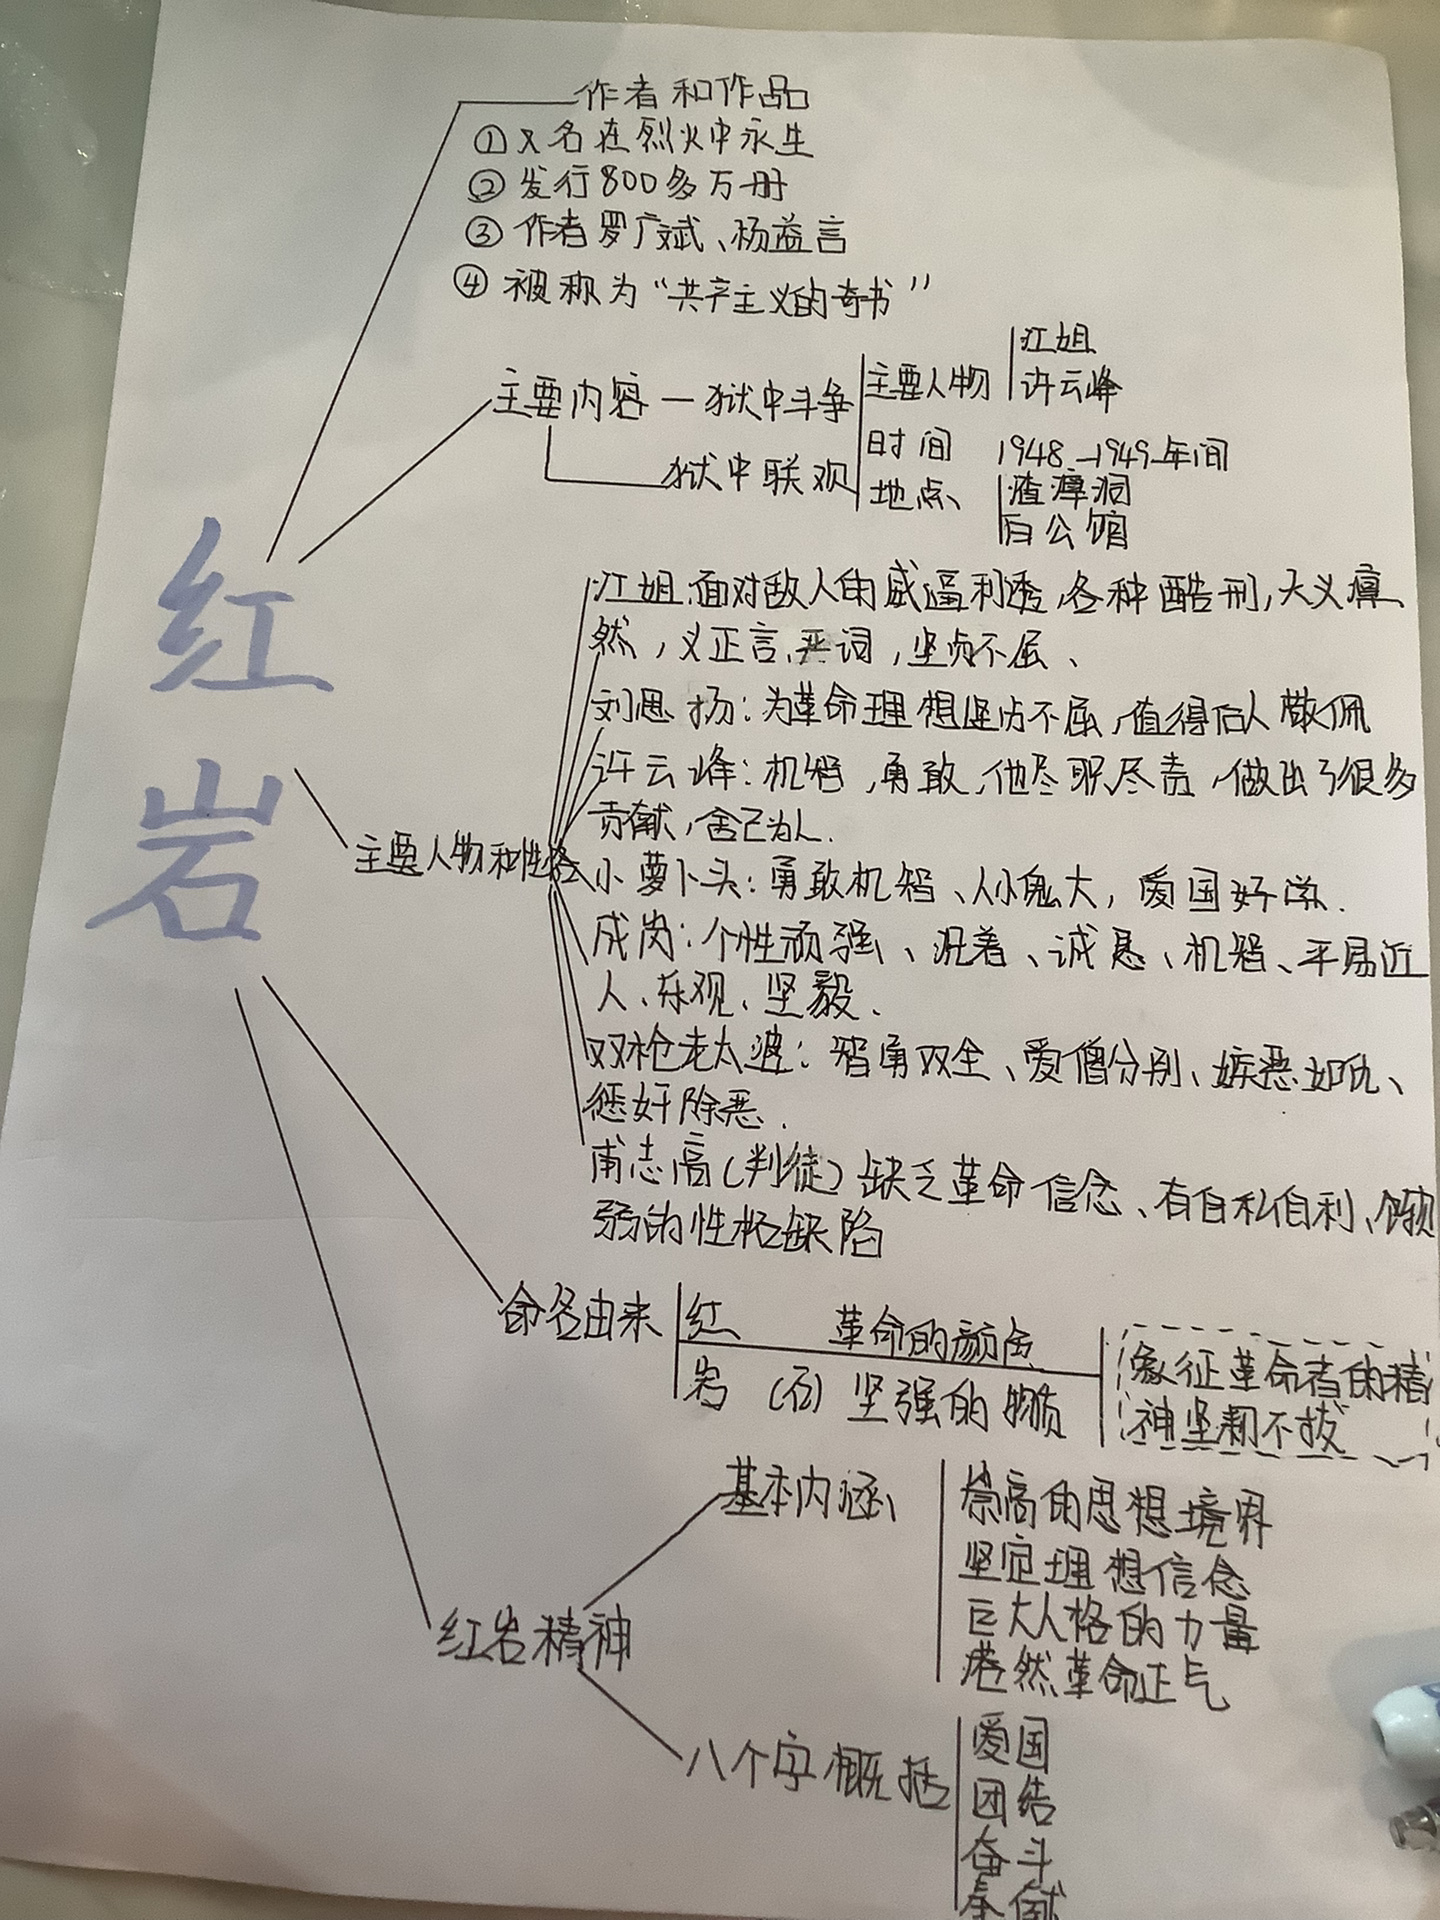 作者和作品
①又名在烈火中永生
②发行800多万册
③作者罗广斌、杨益言
④被称为“共产主义的奇书”
江姐
主要内容—狱中斗争 主要人物 许云峰
时间 1948—1949年间
狱中联欢 地点 渣滓洞
白公馆
红
岩
江姐:面对敌人的威逼利透,各种酷刑,大义凛
然,义正言严词,坚贞不屈、
刘思扬:为革命理想坚贞不屈,值得后人敬佩
许云峰:机智,勇敢,他尽职尽责,做出了很多
贡献,舍己为人.
主要人物和性格
小萝卜头:勇敢机智、人小鬼大,爱国好学.
成岗:个性顽强、沉着、诚恳、机智、平易近
人、乐观、坚毅.
双枪老太婆:智勇双全、爱憎分别、嫉恶如仇、
惩奸除恶.
甫志高(判徒)缺乏革命信念、有自私自利、
弱的性格缺陷
命名由来 红 革命的颜色
岩 (石) 坚强的物质
象征革命者的精
神坚韧不拔
基本内涵 崇高的思想境界
坚定理想信念
巨大人格的力量
浩然革命正气
红岩精神
八个字概括 爱国
团结
奋斗
奉献